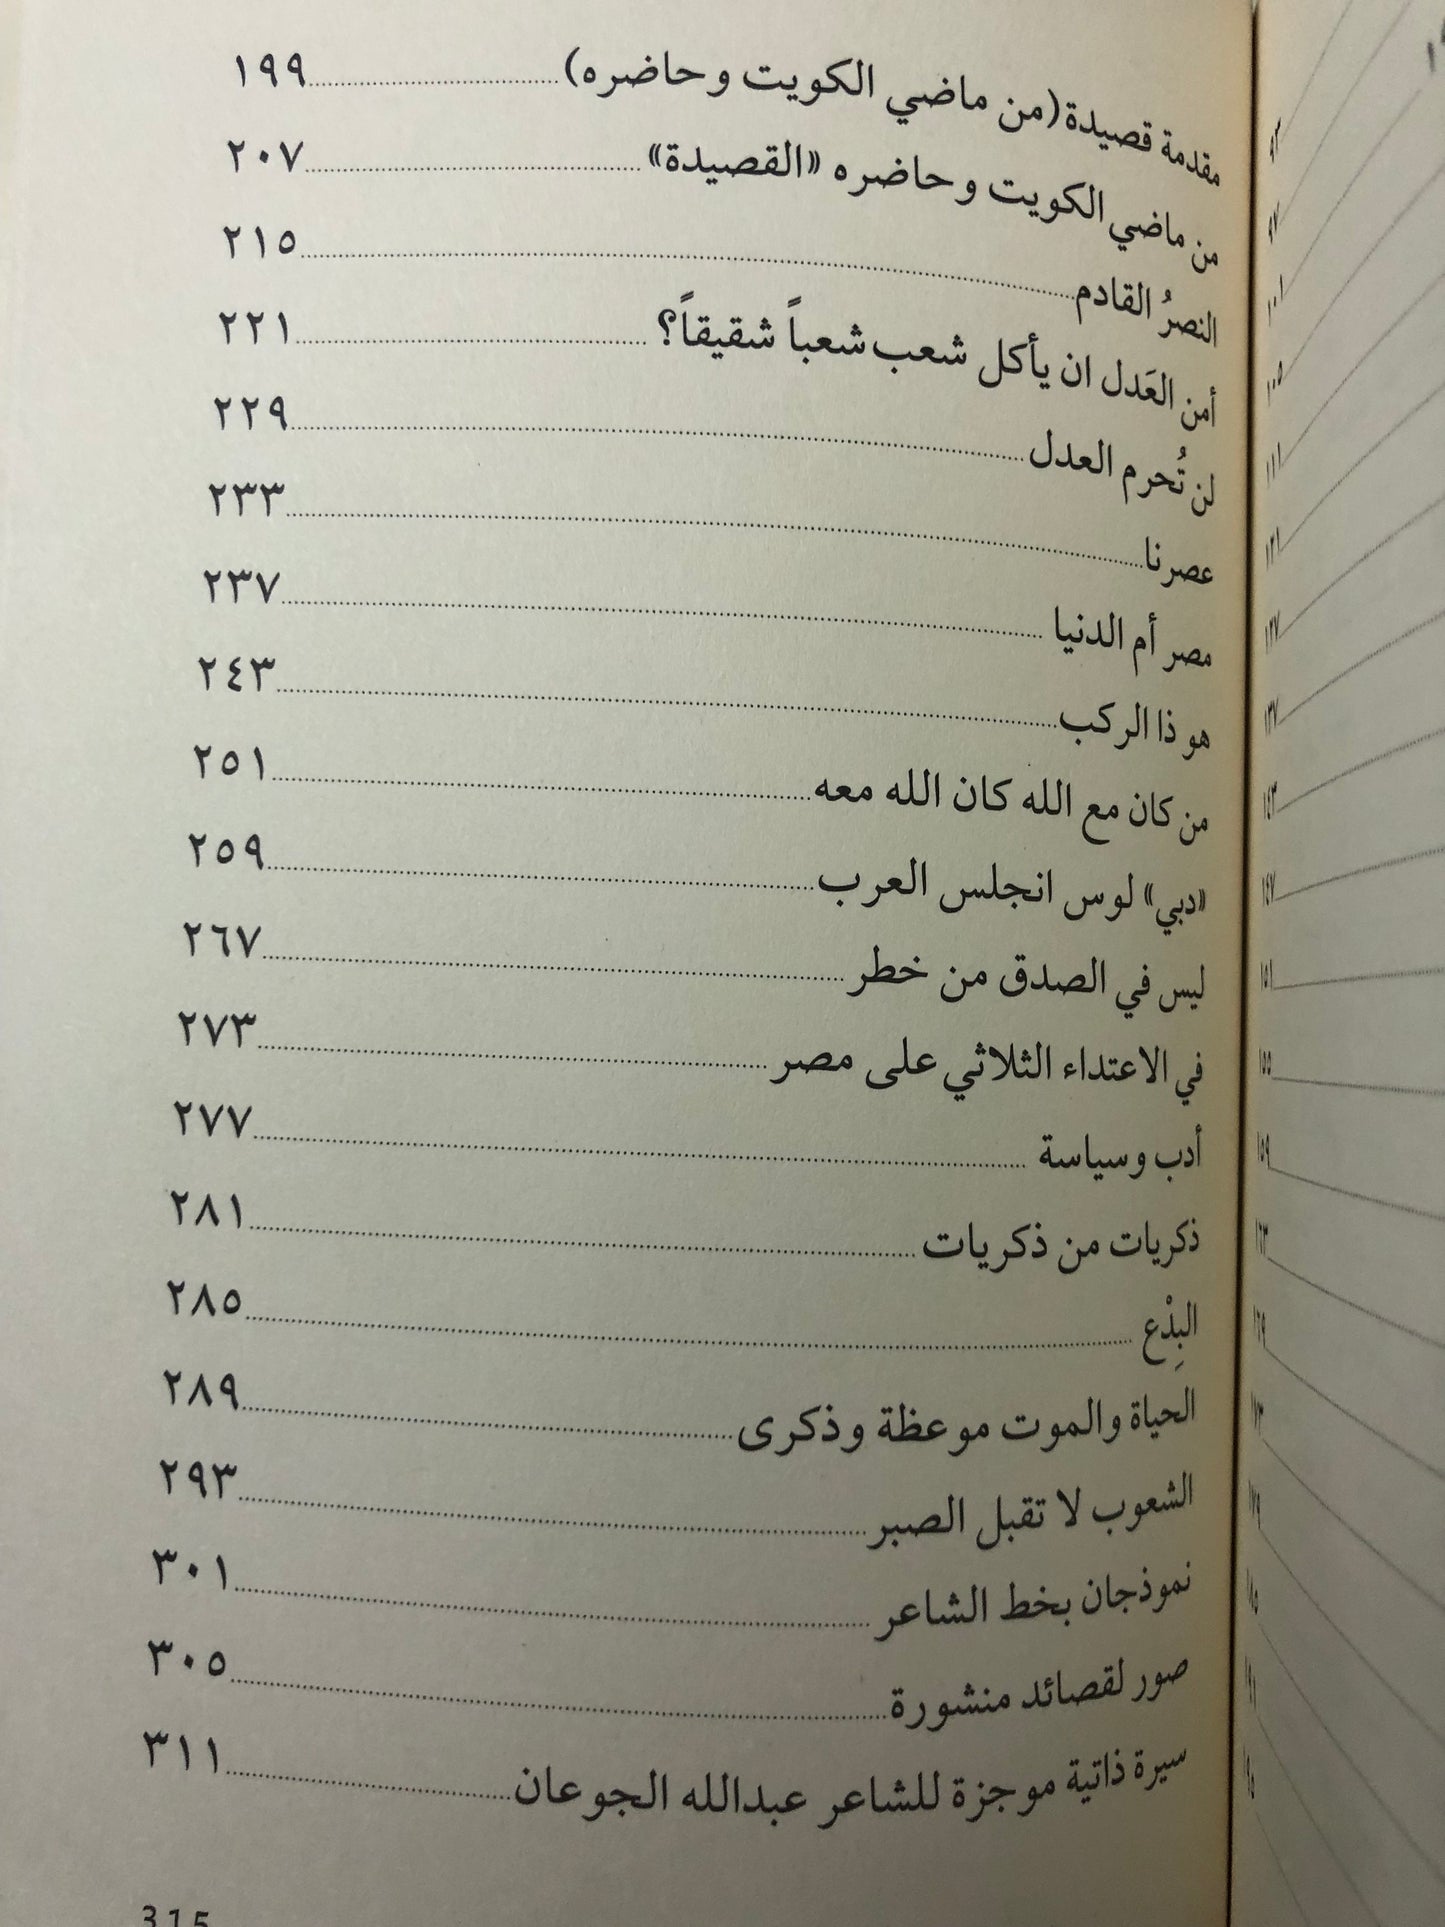 مقدمة قصيدة (من ماضي الكويت وحاضره) ١٩٩
من ماضي الكويت وحاضره «القصيدة» ٢٠٧
النصرُ القادم ٢١٥
أمن العَدل ان يأكل شعب شعباً شقيقاً؟ ٢٢١
لن تُحرم العدل ٢٢٩
عصرنا ٢٣٣
مصر أم الدنيا ٢٣٧
هو ذا الركب ٢٤٣
من كان مع الله كان الله معه ٢٥١
«دبي» لوس انجلس العرب ٢٥٩
ليس في الصدق من خطر ٢٦٧
في الاعتداء الثلاثي على مصر ٢٧٣
أدب وسياسة ٢٧٧
ذكريات من ذكريات ٢٨١
البِدْع ٢٨٥
الحياة والموت موعظة وذكرى ٢٨٩
الشعوب لا تقبل الصبر ٢٩٣
نموذجان بخط الشاعر ٣٠١
صور لقصائد منشورة ٣٠٥
سيرة ذاتية موجزة للشاعر عبدالله الجوعان ٣١١
315
٩٣
٩٧
١٠١
١٠٥
١١١
١٢١
١٢٧
١٣٧
١٤٣
١٤٧
١٥١
١٥٥
١٥٩
١٦٣
١٦٩
١٧٣
١٧٩
١٨٥
١٩١
١٩٥